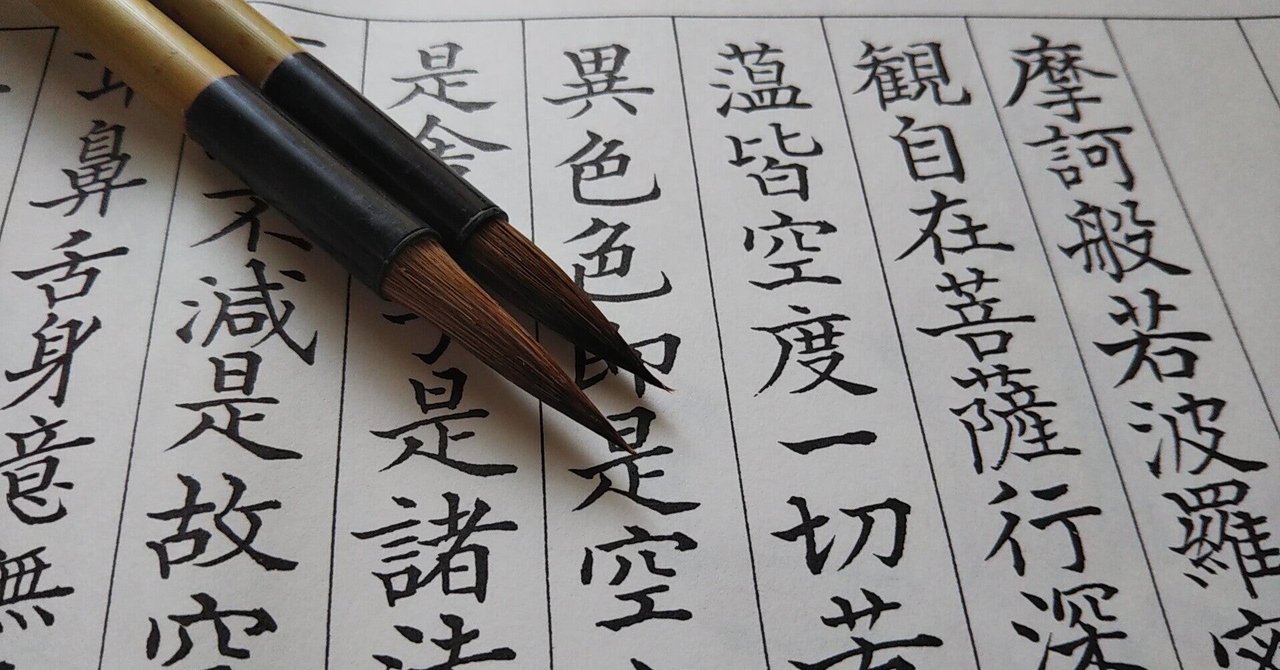 摩訶般若波羅
観自在菩薩行深
薀皆空度一切苦
異色色即是空
是舎子是諸法
不減是故空
鼻舌身意無